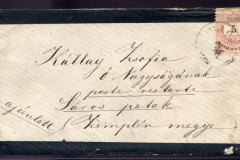 Kállay Zsofia
ő Nagyságának
poste restante
Sáros patak
ajánlott (Zemplén megye)
5